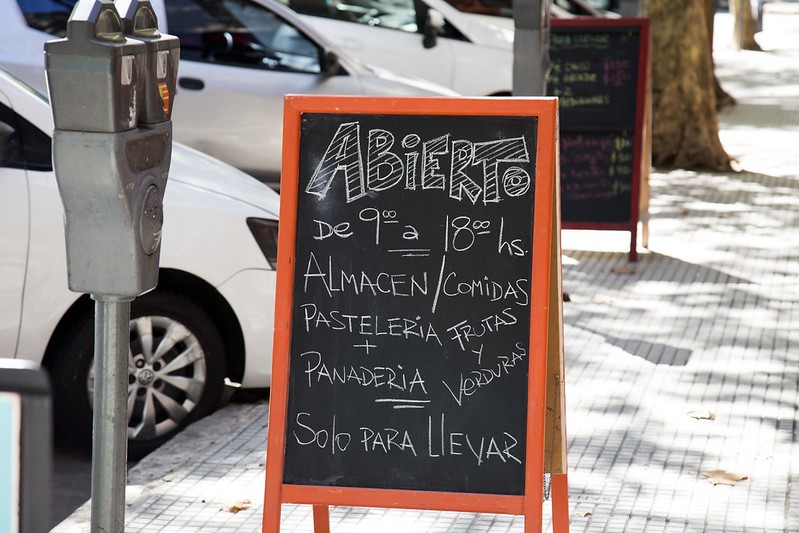 ABiERTo
De 9⁰⁰ a 18⁰⁰ hs.
ALMACEN/COMiDAS
PASTELERiA FRUTAS
+ Y
PANADERiA VERDURAS
SoLo PARA LLEVAR